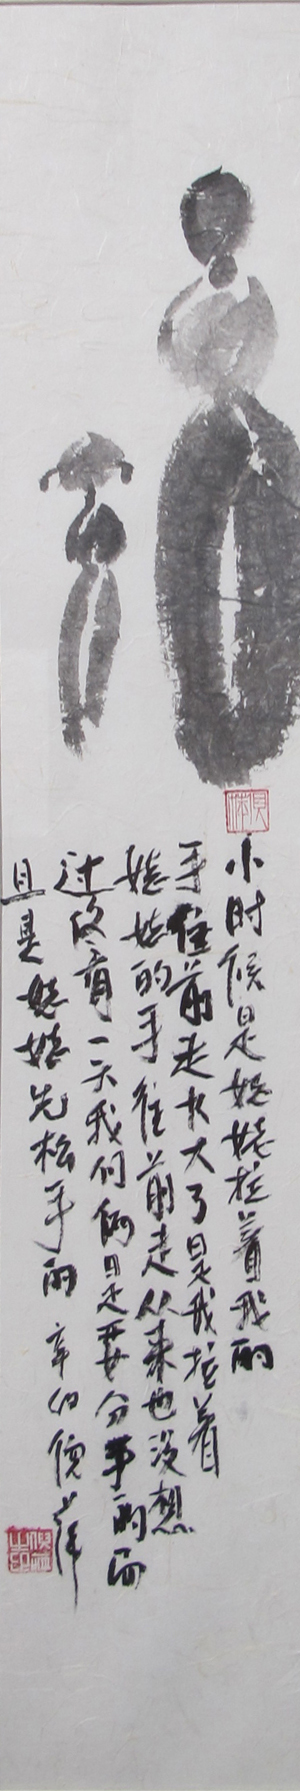 小时候是姥姥拉着我的
手往前走长大了是我拉着
姥姥的手往前走从来也没想
过终有一天我们俩是要分手的而
且是姥姥先松手的 辛卯倪萍